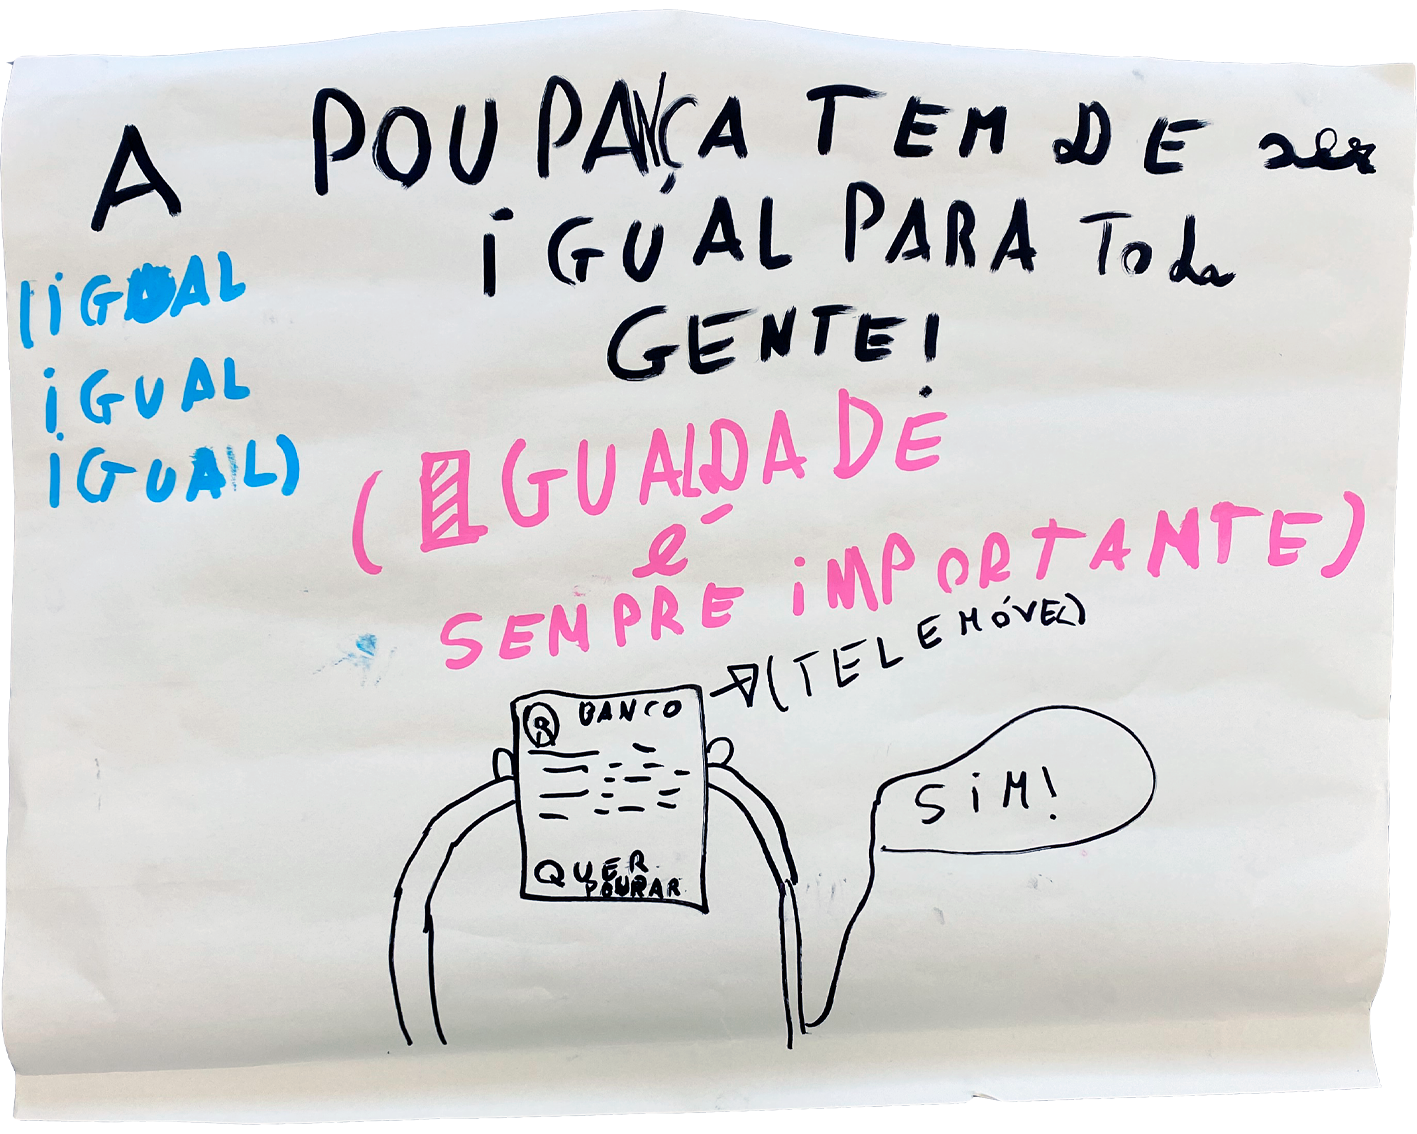 A POUPANÇA TEM DE ser
IGUAL PARA Toda
GENTE!
(IGUAL
IGUAL
IGUAL)
(IGUALDADE
é
SEMPRE IMPORTANTE)
(TELEMÓVEL)
BANCO
QUER
POUPAR
SIM!